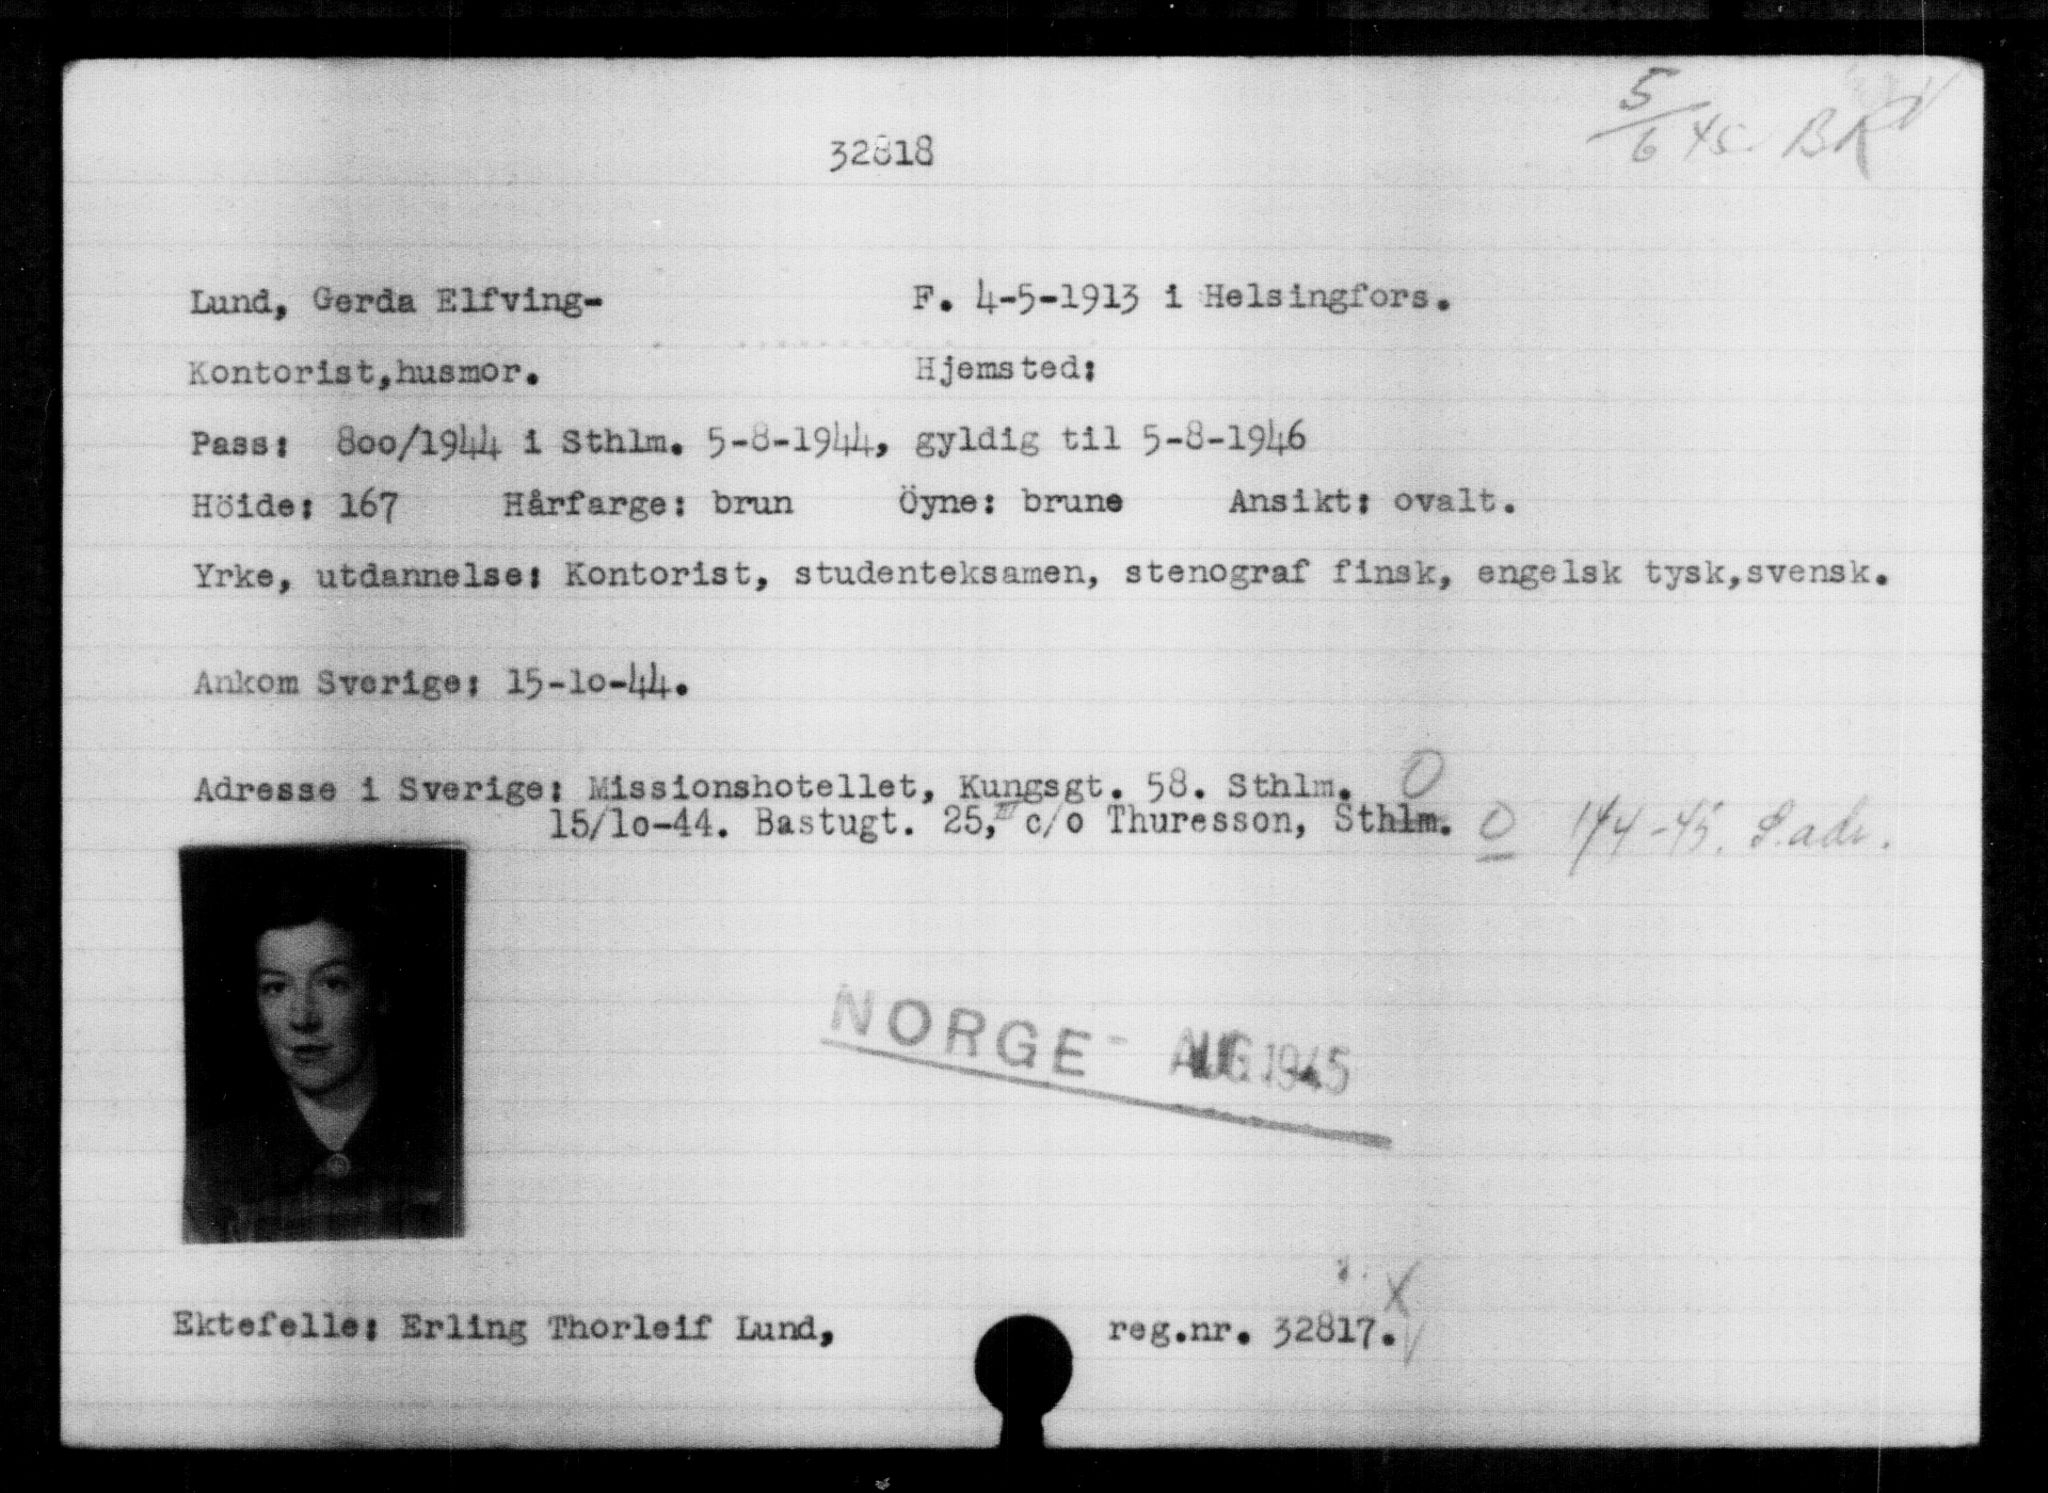 5/6 45 BR
32818
Lund, Gerda Elfving- F. 4-5-1913 i Helsingfors.
Kontorist,husmor. Hjemsted:
Pass: 8oo/1944 i Sthlm. 5-8-1944, gyldig til 5-8-1946
Höide: 167 Hårfarge: brun Öyne: brune Ansikt: ovalt.
Yrke, utdannelse: Kontorist, studenteksamen, stenograf finsk, engelsk tysk,svensk.
Ankom Sverige: 15-1o-44.
Adresse i Sverige: Missionshotellet, Kungsgt. 58. Sthlm. O
15/1o-44. Bastugt. 25, III c/o Thuresson, Sthlm. O 1/4-45. S.adr.
NORGE - AUG 1945
Ektefelle: Erling Thorleif Lund, reg.nr. 32817. X